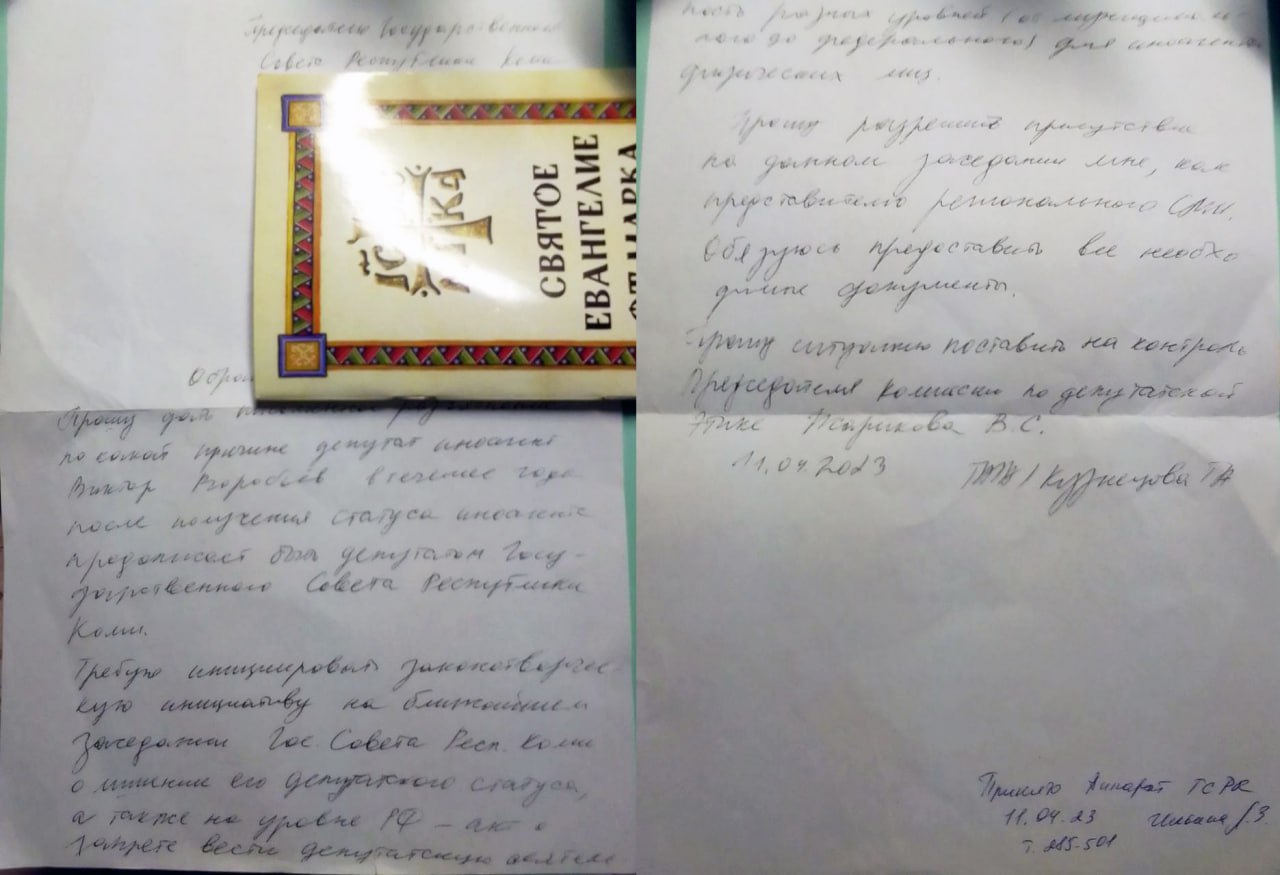 Председателю Государственного
Совета Республики Коми
ІС
НИКА
СВЯТОЕ
ЕВАНГЕЛИЕ
ОТ МАРКА
Обращ
Прошу дать письменное разъяснение
по какой причине депутат иноагент
Виктор Воробьёв в течение года
после получения статуса иноагента
продолжает быть депутатом Госу-
дарственного Совета Республики
Коми.
Требую инициировать законотворчес-
кую инициативу на ближайшем
заседании Гос. Совета Респ. Коми
о лишении его депутатского статуса,
а также на уровне РФ – акт о
запрете вести депутатскую деятель
ность разных уровней (от муниципаль
ного до федерального) для иноагентов
физических лиц.
Прошу разрешить присутствие
на данном заседании мне, как
представителю регионального СМИ.
Обязуюсь предоставить все необхо
димые документы.
Прошу ситуацию поставить на контроль
Председателя комиссии по депутатской
этике Жарикова В.С.
11.04.2023 / Кузнецова ТА
Принято Аппарат ГСРК
11.04.23
т. 285-501